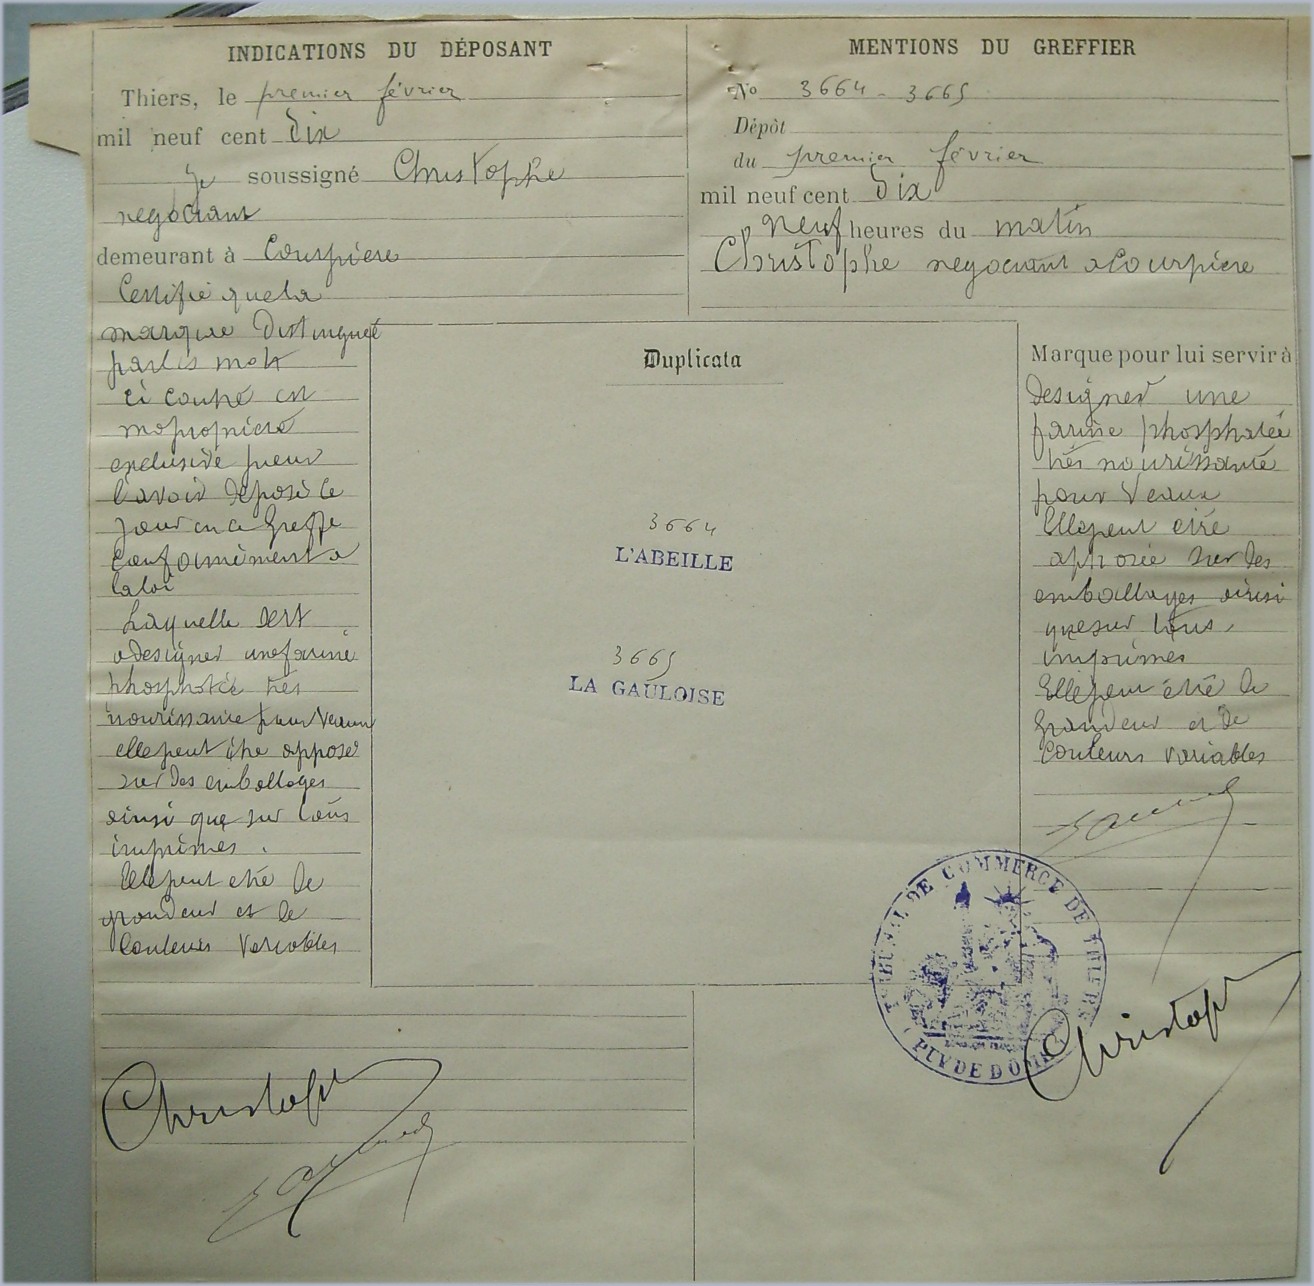 INDICATIONS DU DÉPOSANT
Thiers, le premier février
mil neuf cent Dix
Je soussigné Christophe
negociant
demeurant à Courpiere
Certifie que la
marque Distinguée
par les mots
ci coupé est
ma propriété
exclusive pour
l'avoir déposé ce
jour en ce Greffe
conformément a
la loi
Laquelle sert
a designer une farine
phosphatée trés
nourissante pour Veaux
elle peut être apposé
sur des emballages
ainsi que sur tous
imprimés.
Elle peut etre de
grandeur et de
Couleurs variables
Christophe
MENTIONS DU GREFFIER
No 3664 - 3665
Dépôt
du premier février
mil neuf cent Dix
Neuf heures du matin
Christophe negociant a Courpiere
Marque pour lui servir à
designer une
farine phosphatée
trés nourissante
pour Veaux
Elle peut etre
aposée sur des
emballages ainsi
que sur tous
imprimés
Elle peut être de
Grandeur et de
Couleurs variables
Duplicata
3664
L'ABEILLE
3665
LA GAULOISE
TRIBUNAL DE COMMERCE DE THIERS
(PUY DE DOME)
Christophe